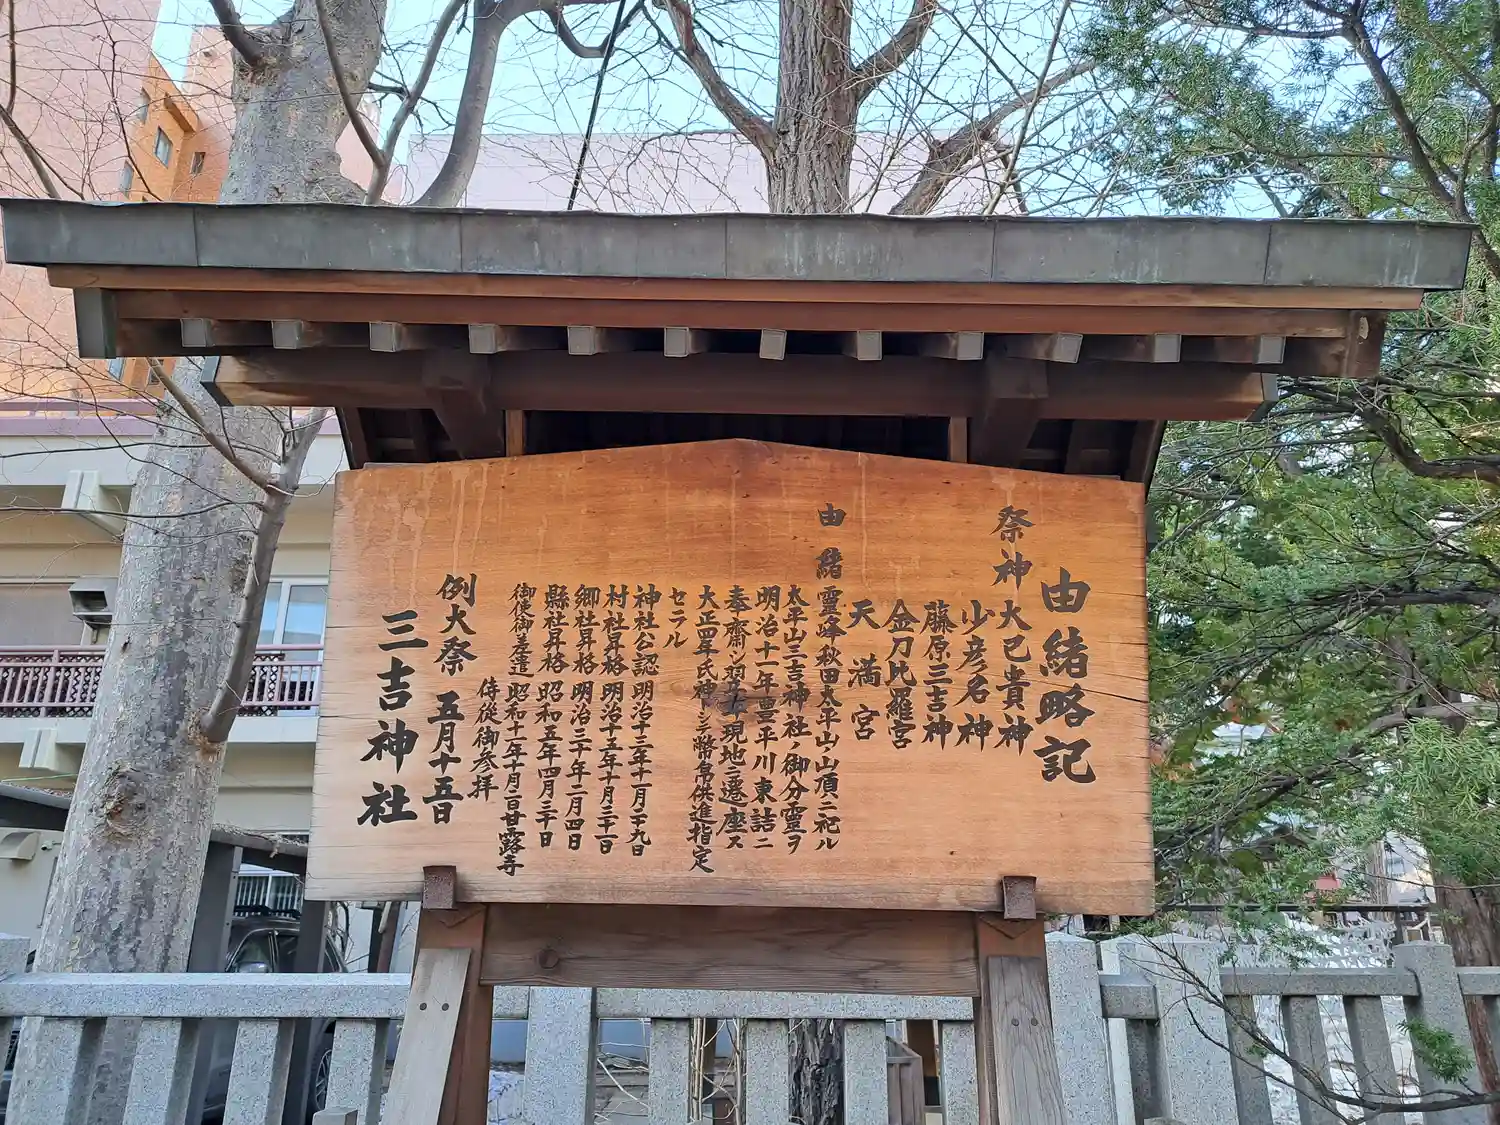 由緒略記
祭神 大己貴神
少彦名神
藤原三吉神
金刀比羅宮
天満宮
由緒 霊峰秋田太平山山頂ニ祀ル
太平山三吉神社ノ御分霊ヲ
明治十一年豊平川東詰ニ
奉齋シ現地ニ遷座ス
大正四年氏神トシテ幣帛供進指定
セラル
神社公認 明治十二年十一月二十九日
村社昇格 明治十五年十月三十一日
郷社昇格 明治三十年二月四日
縣社昇格 昭和五年四月三十日
御使御差遣 昭和十一年十月二日甘露寺
侍従御参拝
例大祭 五月十五日
三吉神社